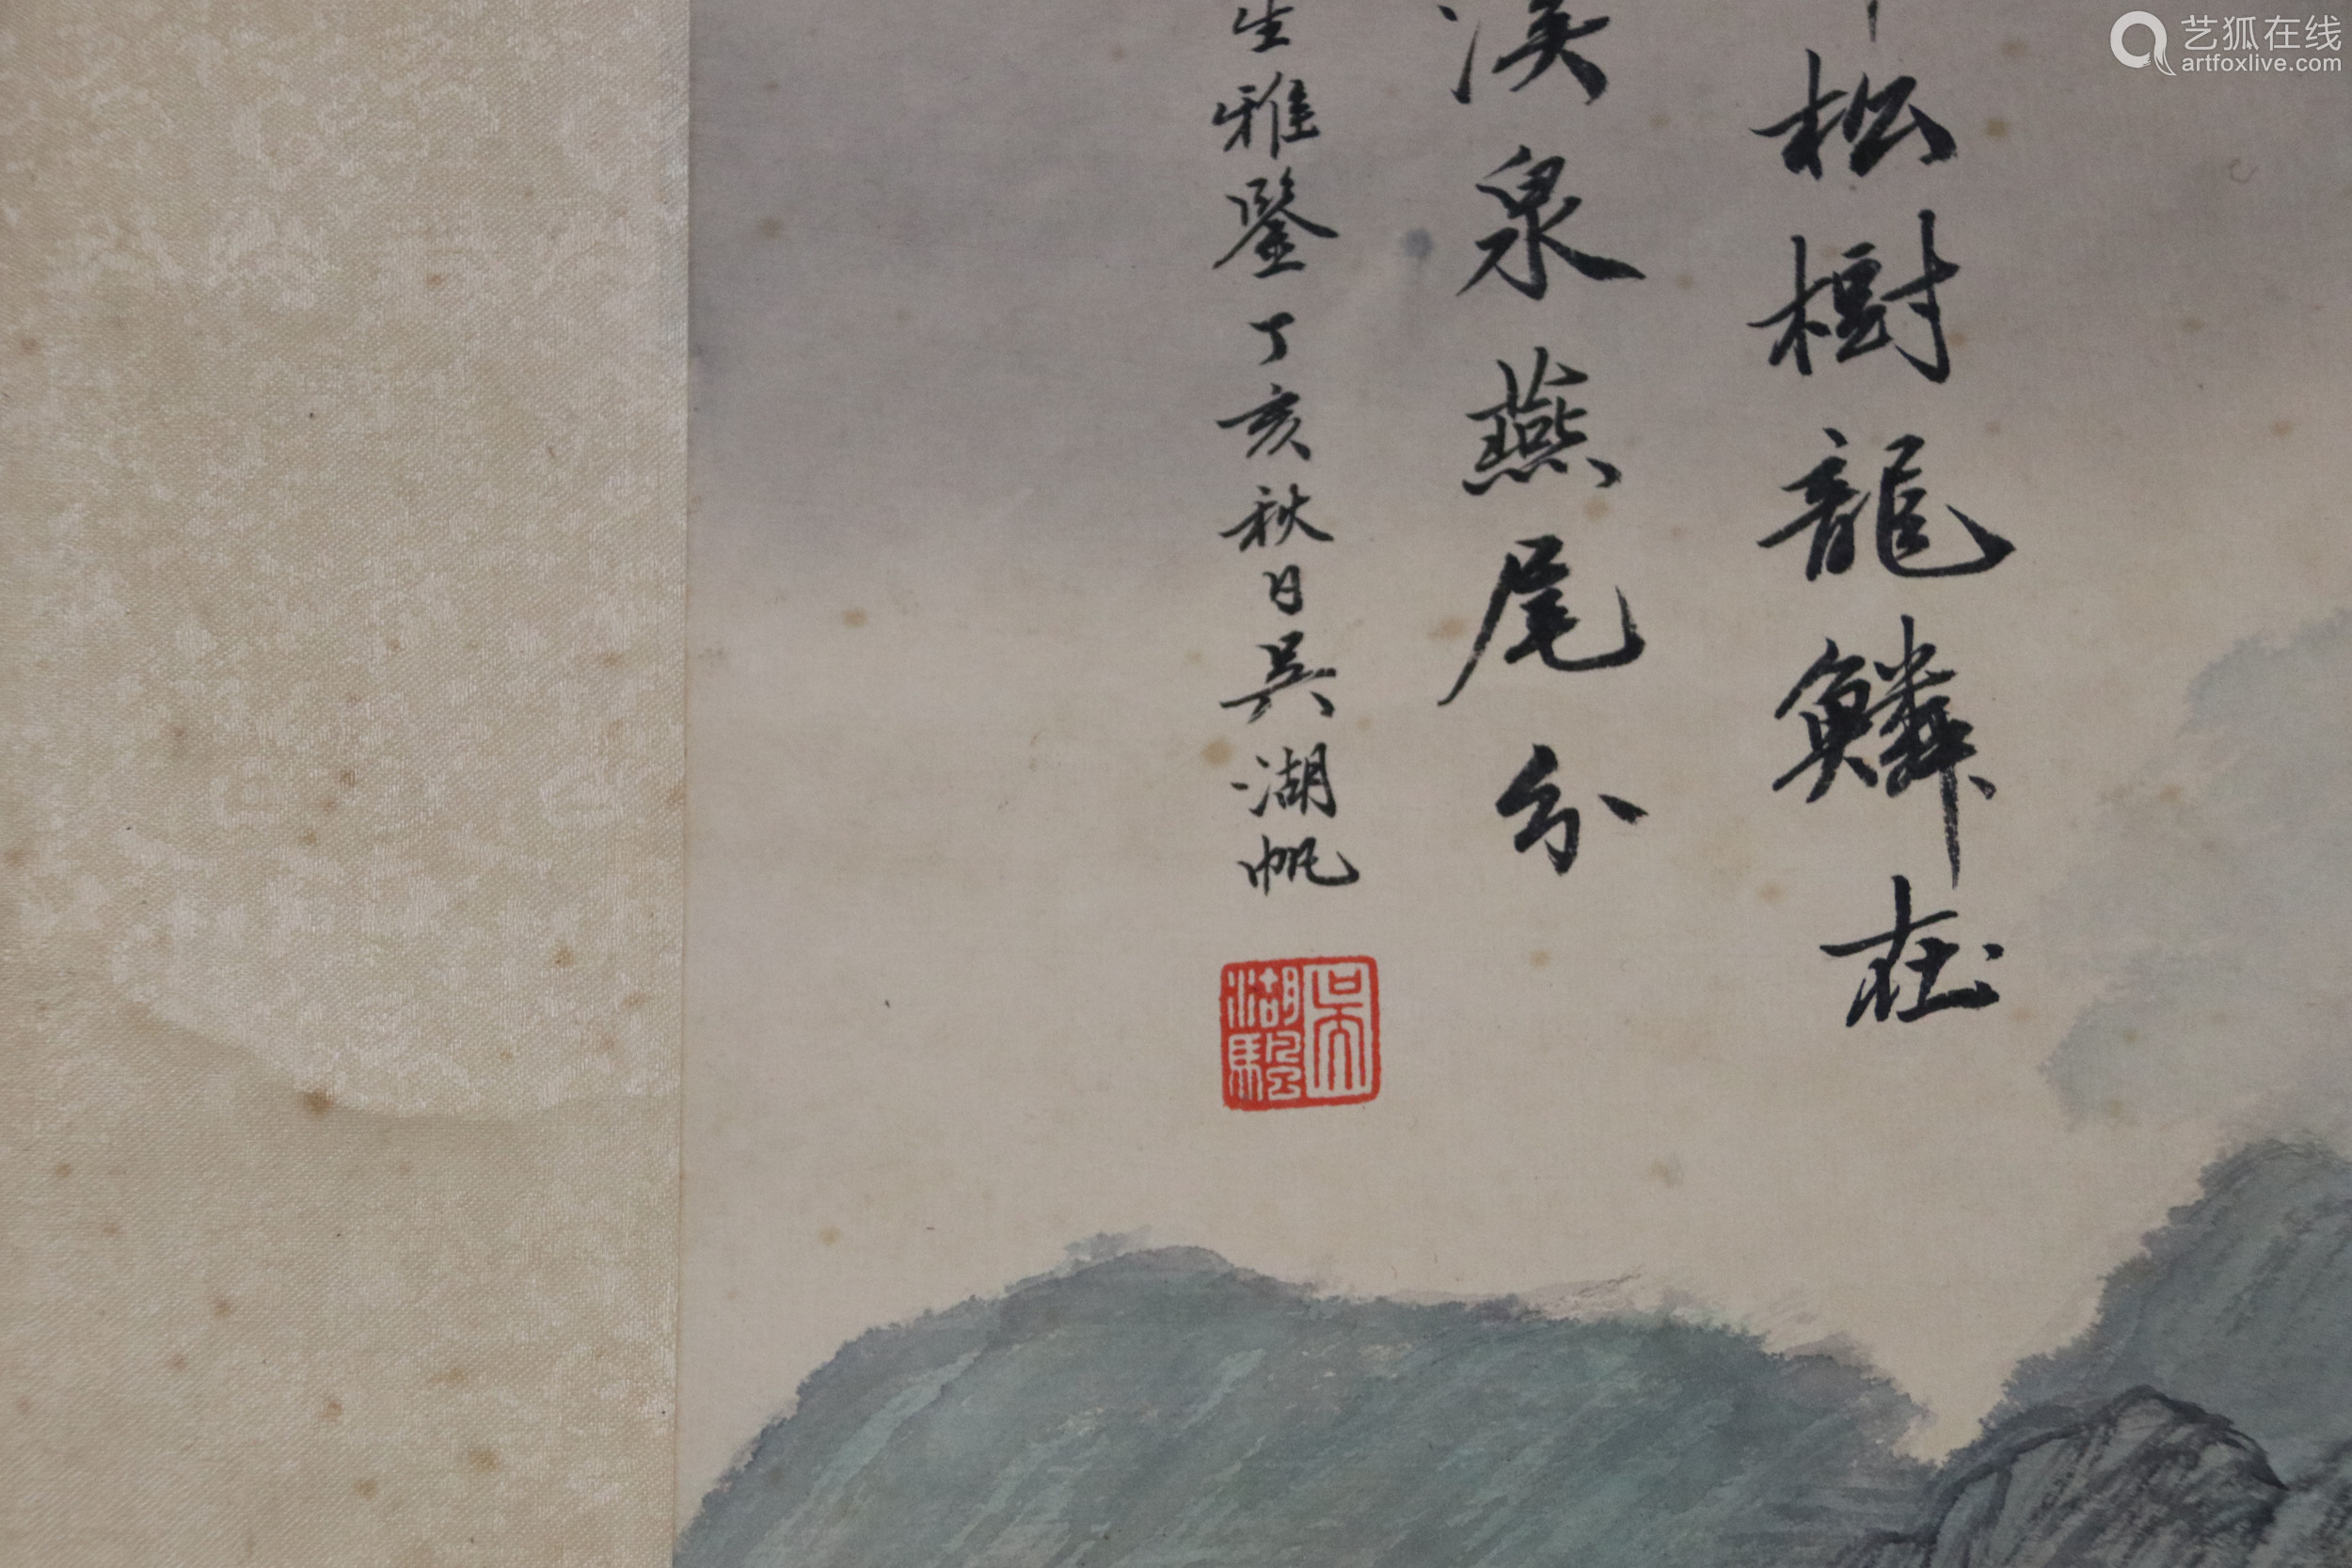 松樹龍鱗在
溪泉燕尾分
生雅鑒丁亥秋日吳湖帆
艺狐在线
artfoxlive.com